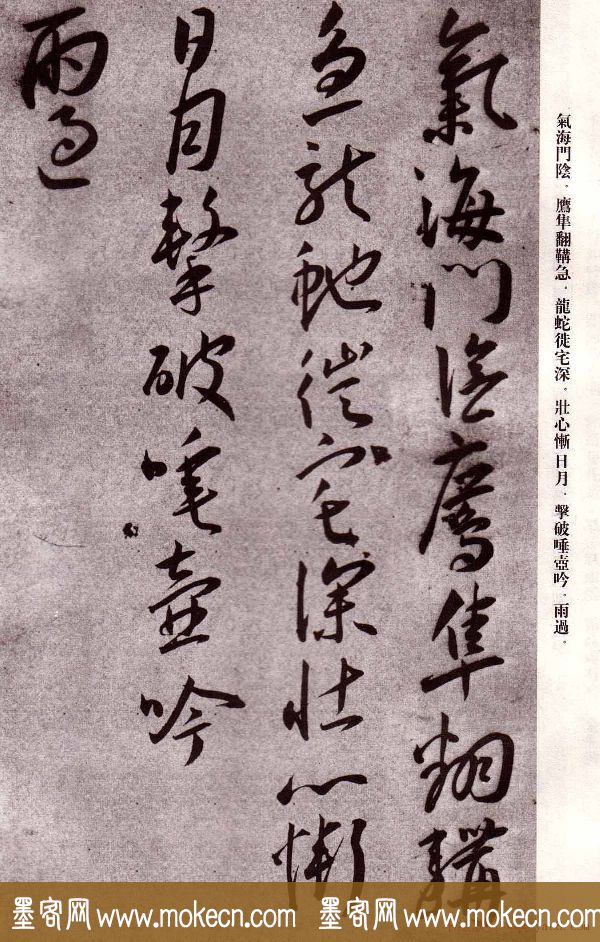 氣海門陰。鷹隼翻鞲急。龍蛇徙宅深。壯心慚日月。擊破唾壺吟。雨過。
氣海門陰鷹隼翻鞲
急龍蛇徙宅深壯心慚
日月擊破唾壺吟
雨過
墨客网 www.mokecn.com 墨客网 www.mokecn.com